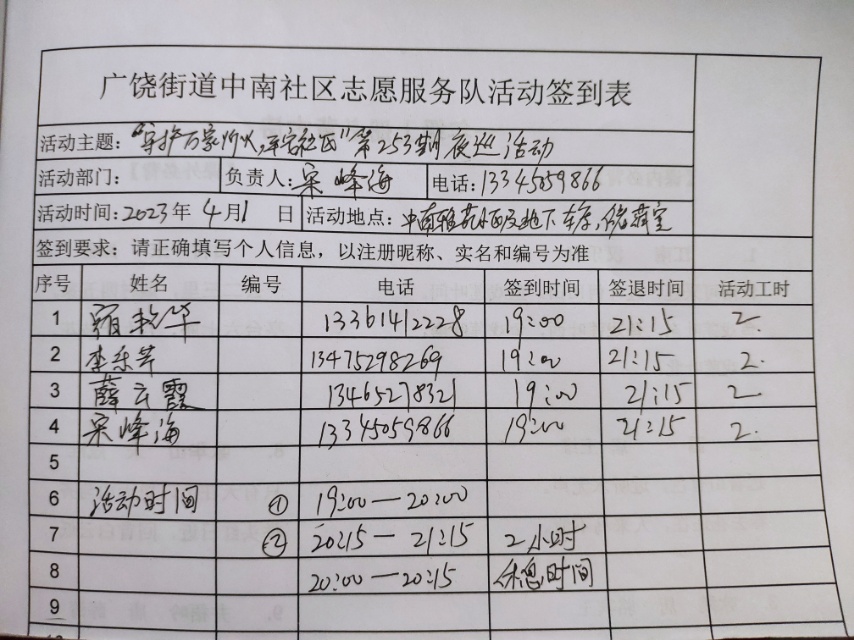 广饶街道中南社区志愿服务队活动签到表
活动主题：“守护万家灯火，平安社区”第253期夜巡活动
活动部门： 负责人：宋峰海 电话：13345059866
活动时间：2023年 4月1 日 活动地点：中南雅苑小区及地下车库，储藏室
签到要求：请正确填写个人信息，以注册昵称、实名和编号为准
序号 姓名 编号 电话 签到时间 签退时间 活动工时
1 13361412228 19:00 21:15 2
2 李乐芹 13475298269 19:00 21:15 2
3 薛云霞 13465278321 19:00 21:15 2
4 宋峰海 13345059866 19:00 21:15 2
5
6 活动时间 ① 19:00—20:00
7 ② 20:15—21:15 2小时
8 20:00—20:15 休息时间
9